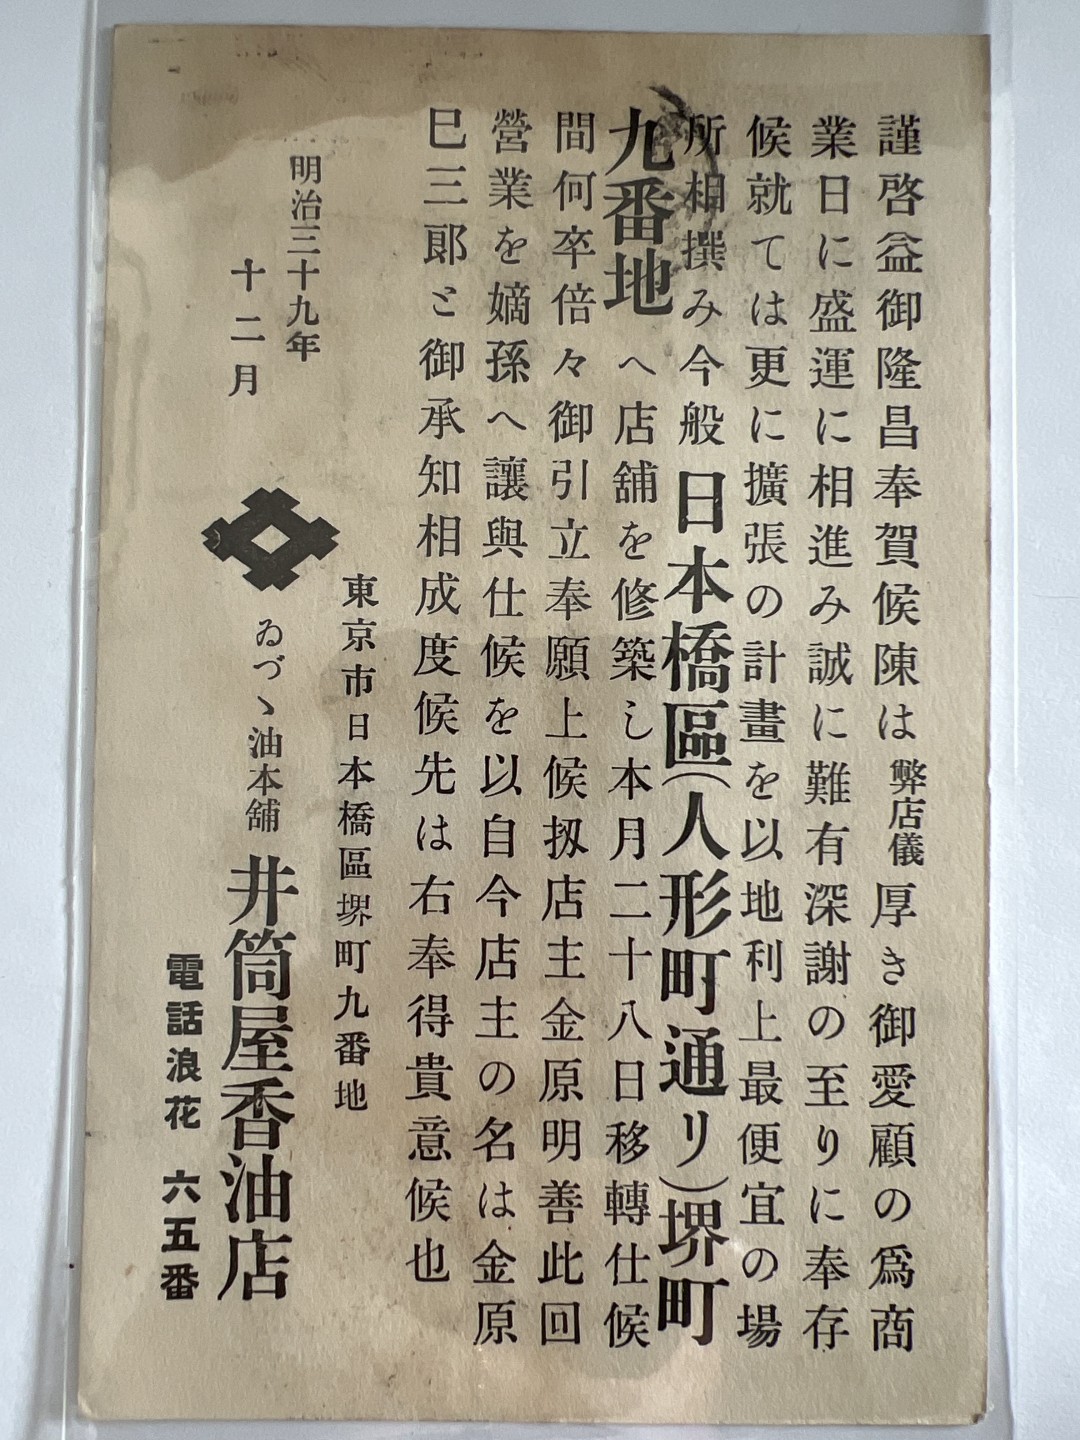 謹啓益御隆昌奉賀候陳は弊店儀厚き御愛顧の爲商
業日に盛運に相進み誠に難有深謝の至りに奉存
候就ては更に擴張の計畫を以地利上最便宜の場
所相撰み今般日本橋區(人形町通リ)堺町
九番地へ店舖を修築し本月二十八日移轉仕候
間何卒倍々御引立奉願上候扨店主金原明善此回
營業を嫡孫へ讓與仕候を以自今店主の名は金原
巳三郞と御承知相成度候先は右奉得貴意候也
明治三十九年
十二月
東京市日本橋區堺町九番地
ゐづゝ油本舖 井筒屋香油店
電話浪花 六五番